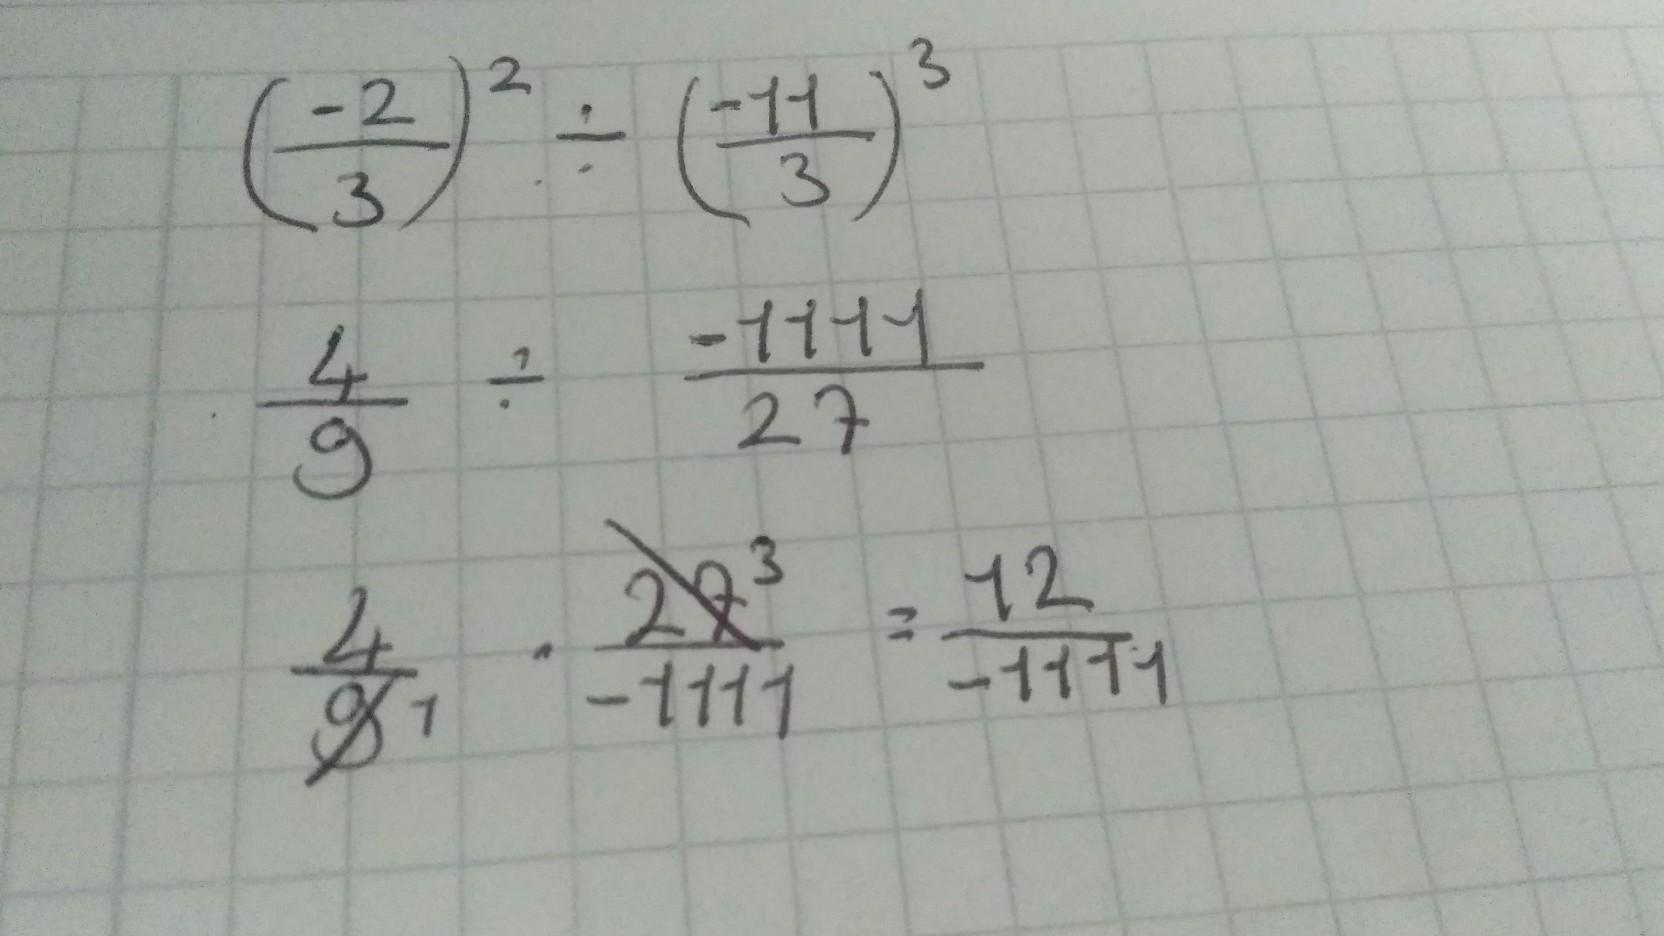 (-2/3)² ÷ (-11/3)³
4/9 ÷ -1111/27
4/9 1 · 27 3/-1111 = 12/-1111